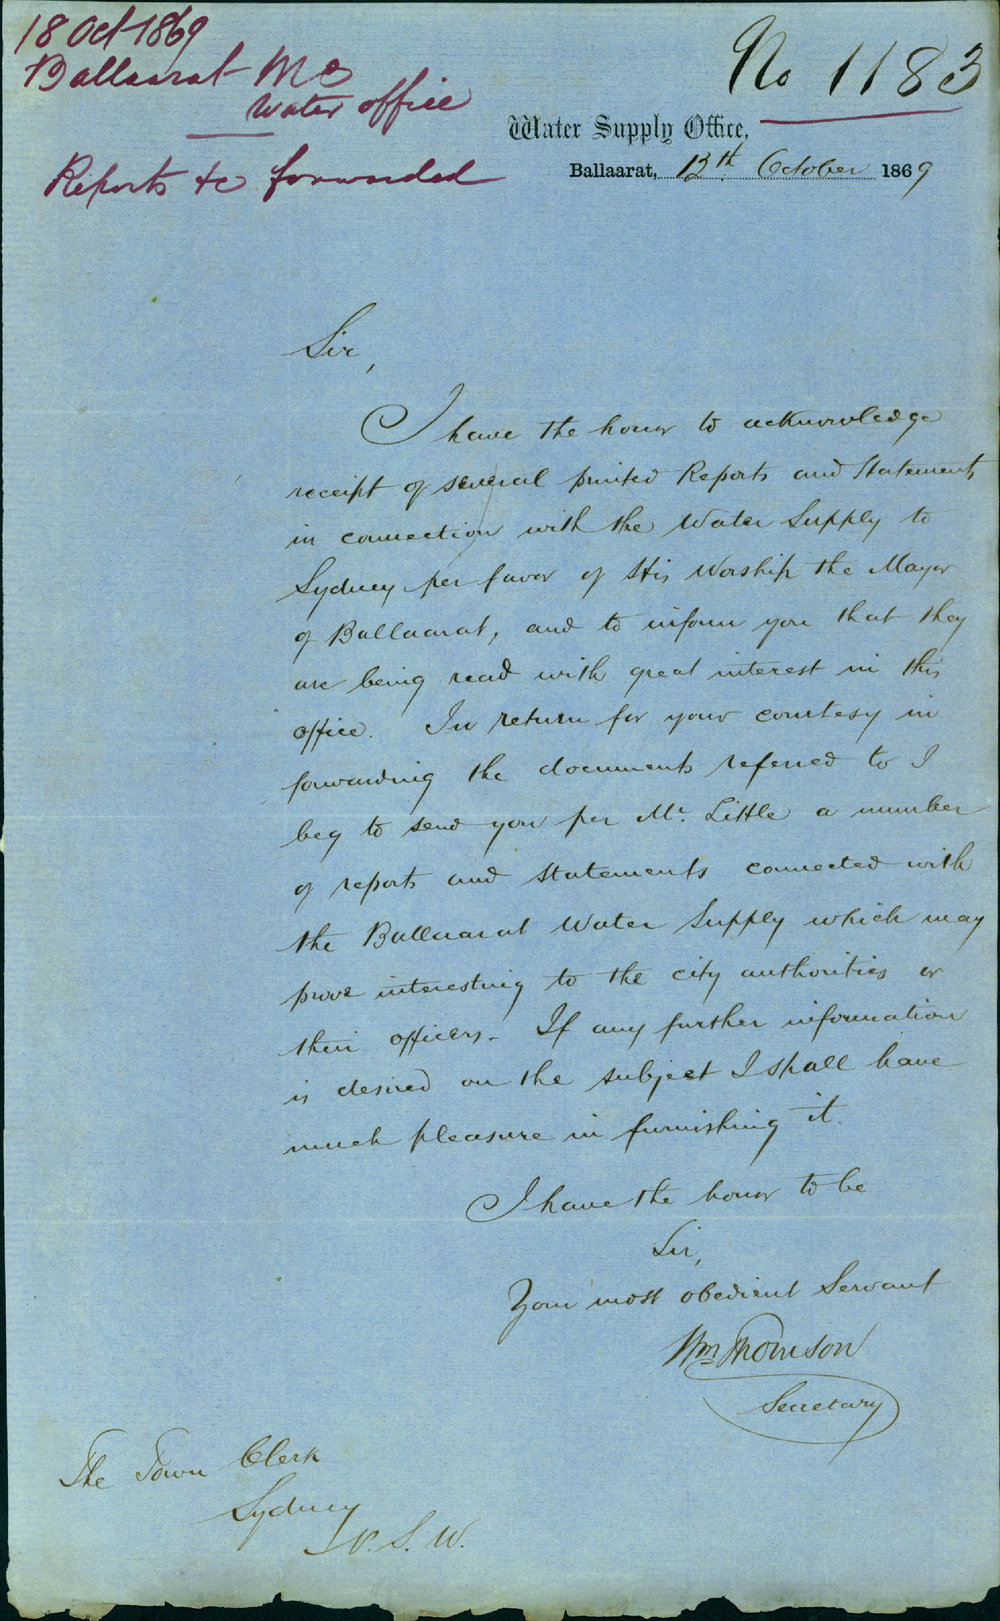 18 Oct 1869
Ballaarat M C
Water office
Reports &c forwarded
No 1183
Water Supply Office,
Ballaarat, 13th October 1869
Sir,
I have the honor to acknowledge
receipt of several printed Reports and Statements
in connection with the Water Supply to
Sydney per favor of His Worship the Mayor
of Ballaarat, and to inform you that they
are being read with great interest in this
office. In return for your courtesy in
forwarding the documents referred to I
beg to send you per Mr. Little a number
of reports and statements connected with
the Ballaarat Water Supply which may
prove interesting to the city authorities or
their officers. If any further information
is desired on the subject I shall have
much pleasure in furnishing it.
I have the honor to be
Sir,
Your most obedient Servant
Wm Thomson
Secretary
The Town Clerk
Sydney
N.S.W.